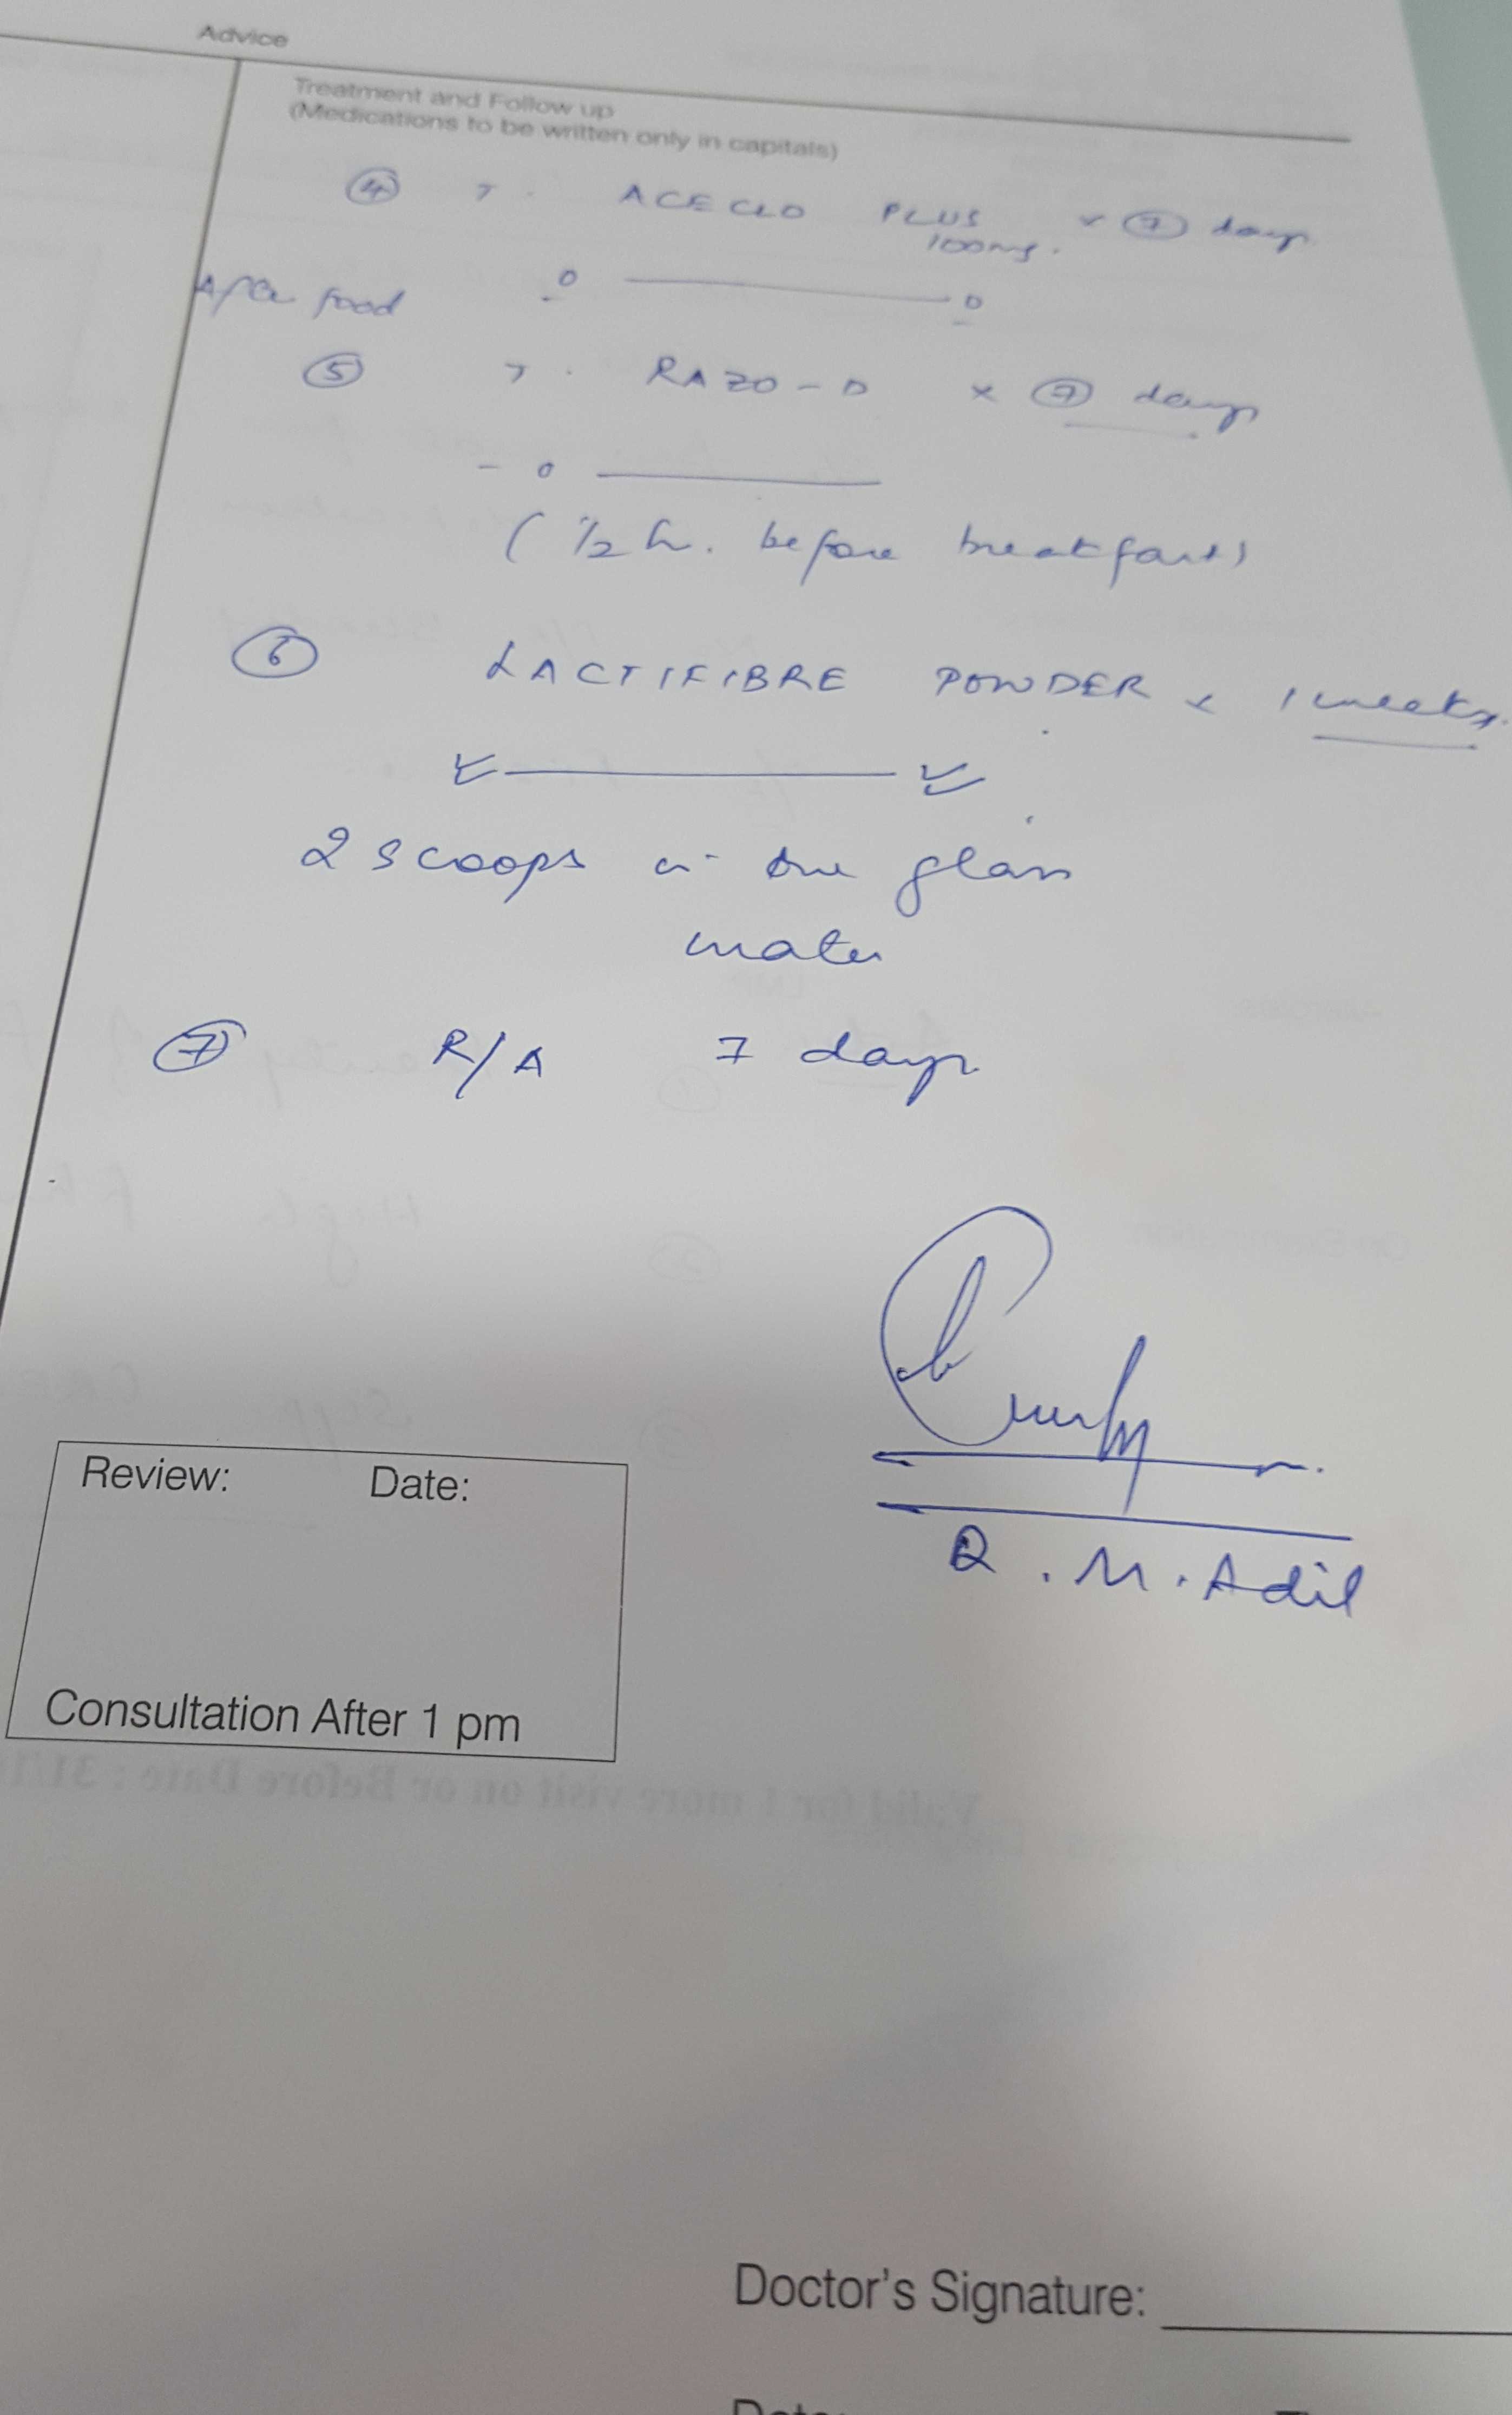 Advice
Treatment and Follow up
(Medications to be written only in capitals)
④ T. ACECLO PLUS x ⑦ days
100mg.
After food o — o
⑤ T. RAZO-D x ⑦ days
- o —
(1/2 h. before breakfast)
⑥ LACTIFIBRE POWDER x 1 week
2 scoops in one glass
water
⑦ R/A 7 days
Review: Date:
Consultation After 1 pm
M. Adil
Valid for 1 more visit on or Before Date : 31/1
Doctor's Signature: